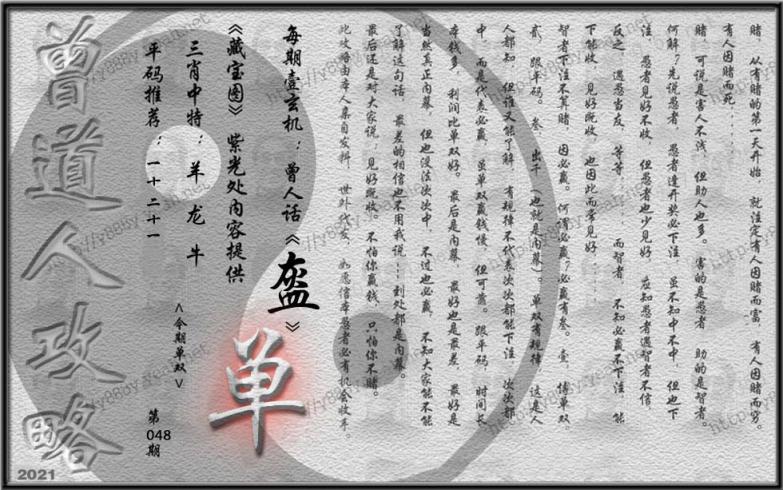 赌，从有赌的第一天开始，就注定有人因赌而富，有人因赌而穷。
有人因赌而死……
赌，可说是害人不浅，但助人也多。害的是愚者，助的是智者。
何解？先说愚者，愚者逢开奖必下注，虽不知中不中，但也下
注，愚者见好不收，但愚者也少见好，应知愚者遇智者不信，
反之，遇愚当友，等等……而智者，不知必赢不下注，能
下能收，见好既收，也因此而常见好……
智者下注不算赌，因必赢。何谓必赢？必赢有叁。壹，博单双
贰，跟平码。叁，出千（也就是内幕）。单双有规律，这是人
人都知，但谁又能了解，有规律不代表次次都能下注，次次都
中，而是代表必赢，虽单双赢钱慢，但可靠。跟平码，时间长
本钱多，利润比单双好。最后是内幕，最好也是最差，最好是
当然真正内幕，但也没法次次中，不过也必赢，不知大家能不能
了解这句话，最差的相信也不用我说……到处都是内幕。
最后还是对大家说：见好既收。不怕你赢钱，只怕你不赌。
此攻略由本人亲自发料，世外代发，愿信本愚者必有机会收丰。
每期壹玄机：曾人话《盔》
《藏宝图》紫光处内容提供
三肖中特：羊龙牛
平码推荐：一十二十一
<今期单双>
单
第048期
曾道人攻略
2021